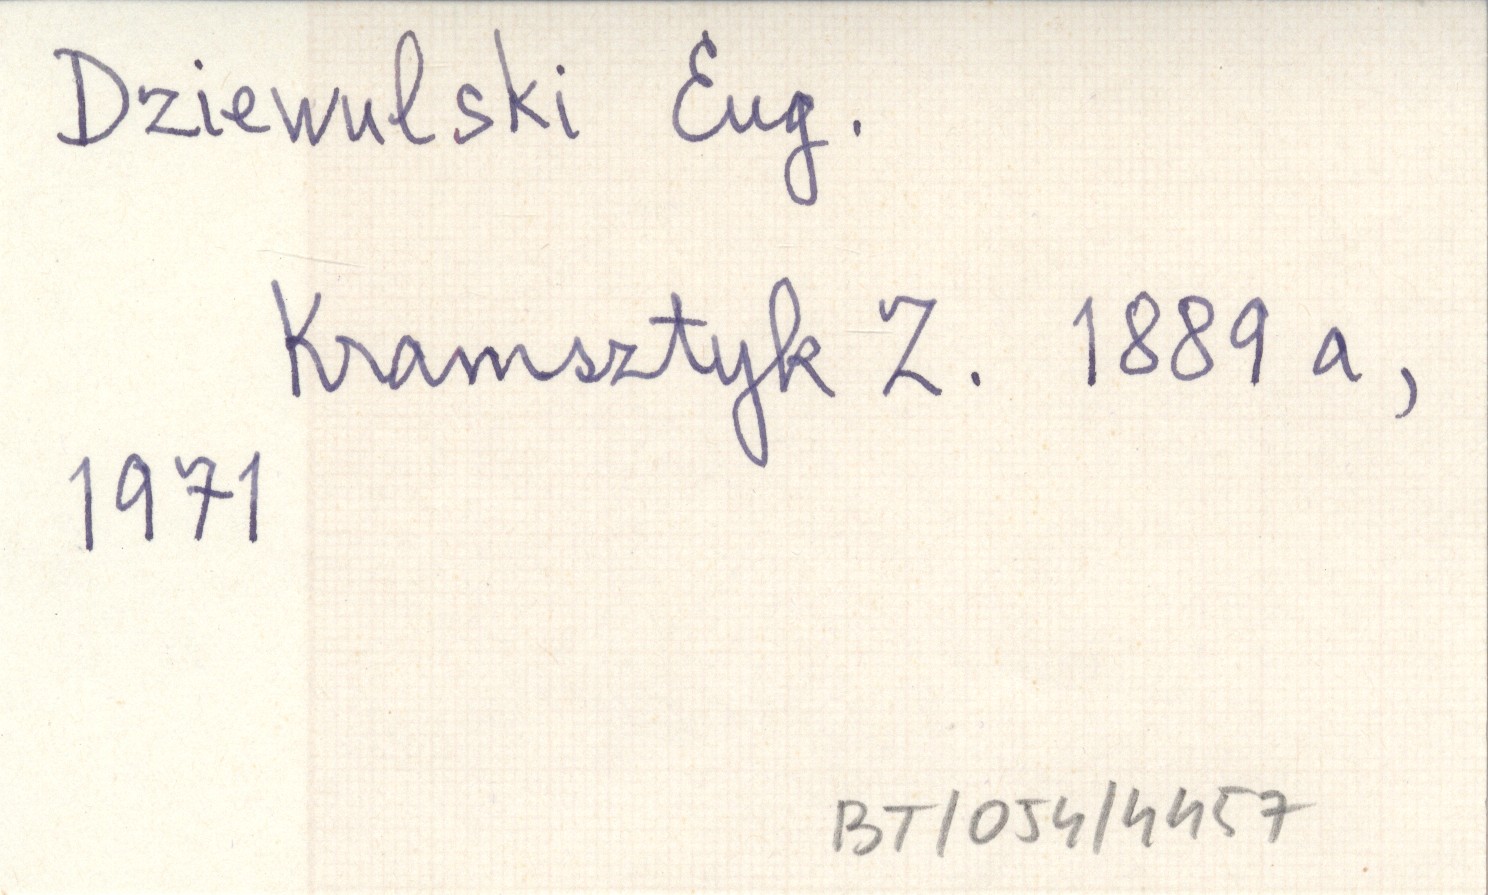 Dziewulski Eug.
Kramsztyk Z. 1889 a,
1971
BT/054/4457